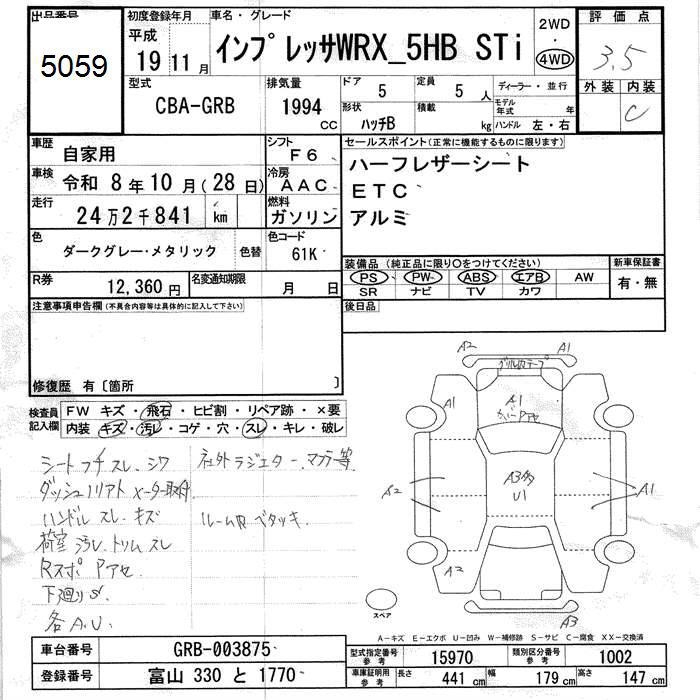 出品番号
5059
初度登録年月
平成
19 11 月
車名・グレード
インプレッサWRX_5HB STi
2WD
・
4WD
評価点
3.5
外装 内装
C
型式
CBA-GRB
排気量
1994
CC
ドア
5
定員
5 人
ディーラー・並行
モデル年式 年
形状
ハッチB
積載
kg
ハンドル 左・右
車歴
自家用
シフト
F6
車検
令和 8年 10月(28日)
冷房
AAC
走行
24万2千841 km
燃料
ガソリン
色
ダークグレー・メタリック
色替
色コード
61K
R券
12,360 円
名変通知期限
月 日
セールスポイント(正常に機能するものに限ります)
ハーフレザーシート
ETC
アルミ
装備品(純正品に限り○をつけてください)
新車保証書
PS PW ABS エアB AW
有・無
SR ナビ TV カワ
後日品
注意事項申告欄(不具合内容等は具体的に記入して下さい)
修復歴 有〔箇所 〕
検査員記入欄
FW キズ・飛石・ヒビ割・リペア跡・×要
内装 キズ・汚レ・コゲ・穴・スレ・キレ・破レ
シートフチスレ.シワ
社外ラジエター.マフラー等
メーター取付
ハンドル スレ.キズ
ルームR ベタツキ.
荷室 汚レ.トリムスレ
Rスポ Pアセ.
下廻りS
各A.U.
A2
A1
A1
A1
A1
A2
A3多
U1
A1
A2
A3
スペア
A-キズ E-エクボ U-凹み W-補修跡 S-サビ C-腐食 XX-交換済
車台番号
GRB-003875
登録番号
富山 330 と 1770
型式指定番号
参考
15970
類別区分番号
参考
1002
車庫証明用
参考
長さ 441 cm 幅 179 cm 高さ 147 cm